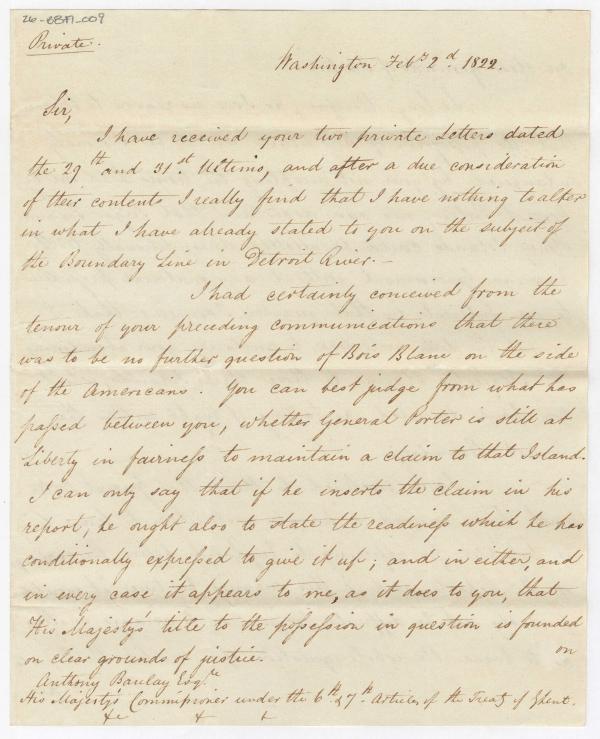 26-BBA-009
Private.
Washington Feby 2d. 1822.
Sir,
I have received your two private Letters dated
the 29th and 31st. Ultimo, and after a due consideration
of their contents I really find that I have nothing to alter
in what I have already stated to you on the subject of
the Boundary Line in Detroit River.—
I had certainly conceived from the
tenour of your preceding communications that there
was to be no further question of Bois Blanc on the side
of the Americans. You can best judge from what has
passed between you, whether General Porter is still at
Liberty in fairness to maintain a claim to that Island.
I can only say that if he inserts the claim in his
report, he ought also to state the readiness which he has
conditionally expressed to give it up; and in either, and
in every case it appears to me, as it does to you, that
His Majesty's title to the possession in question is founded
on clear grounds of justice.
on
Anthony Barclay Esqre
His Majesty's Commissioner under the 6th & 7th Articles of the Treaty of Ghent.
&c & &